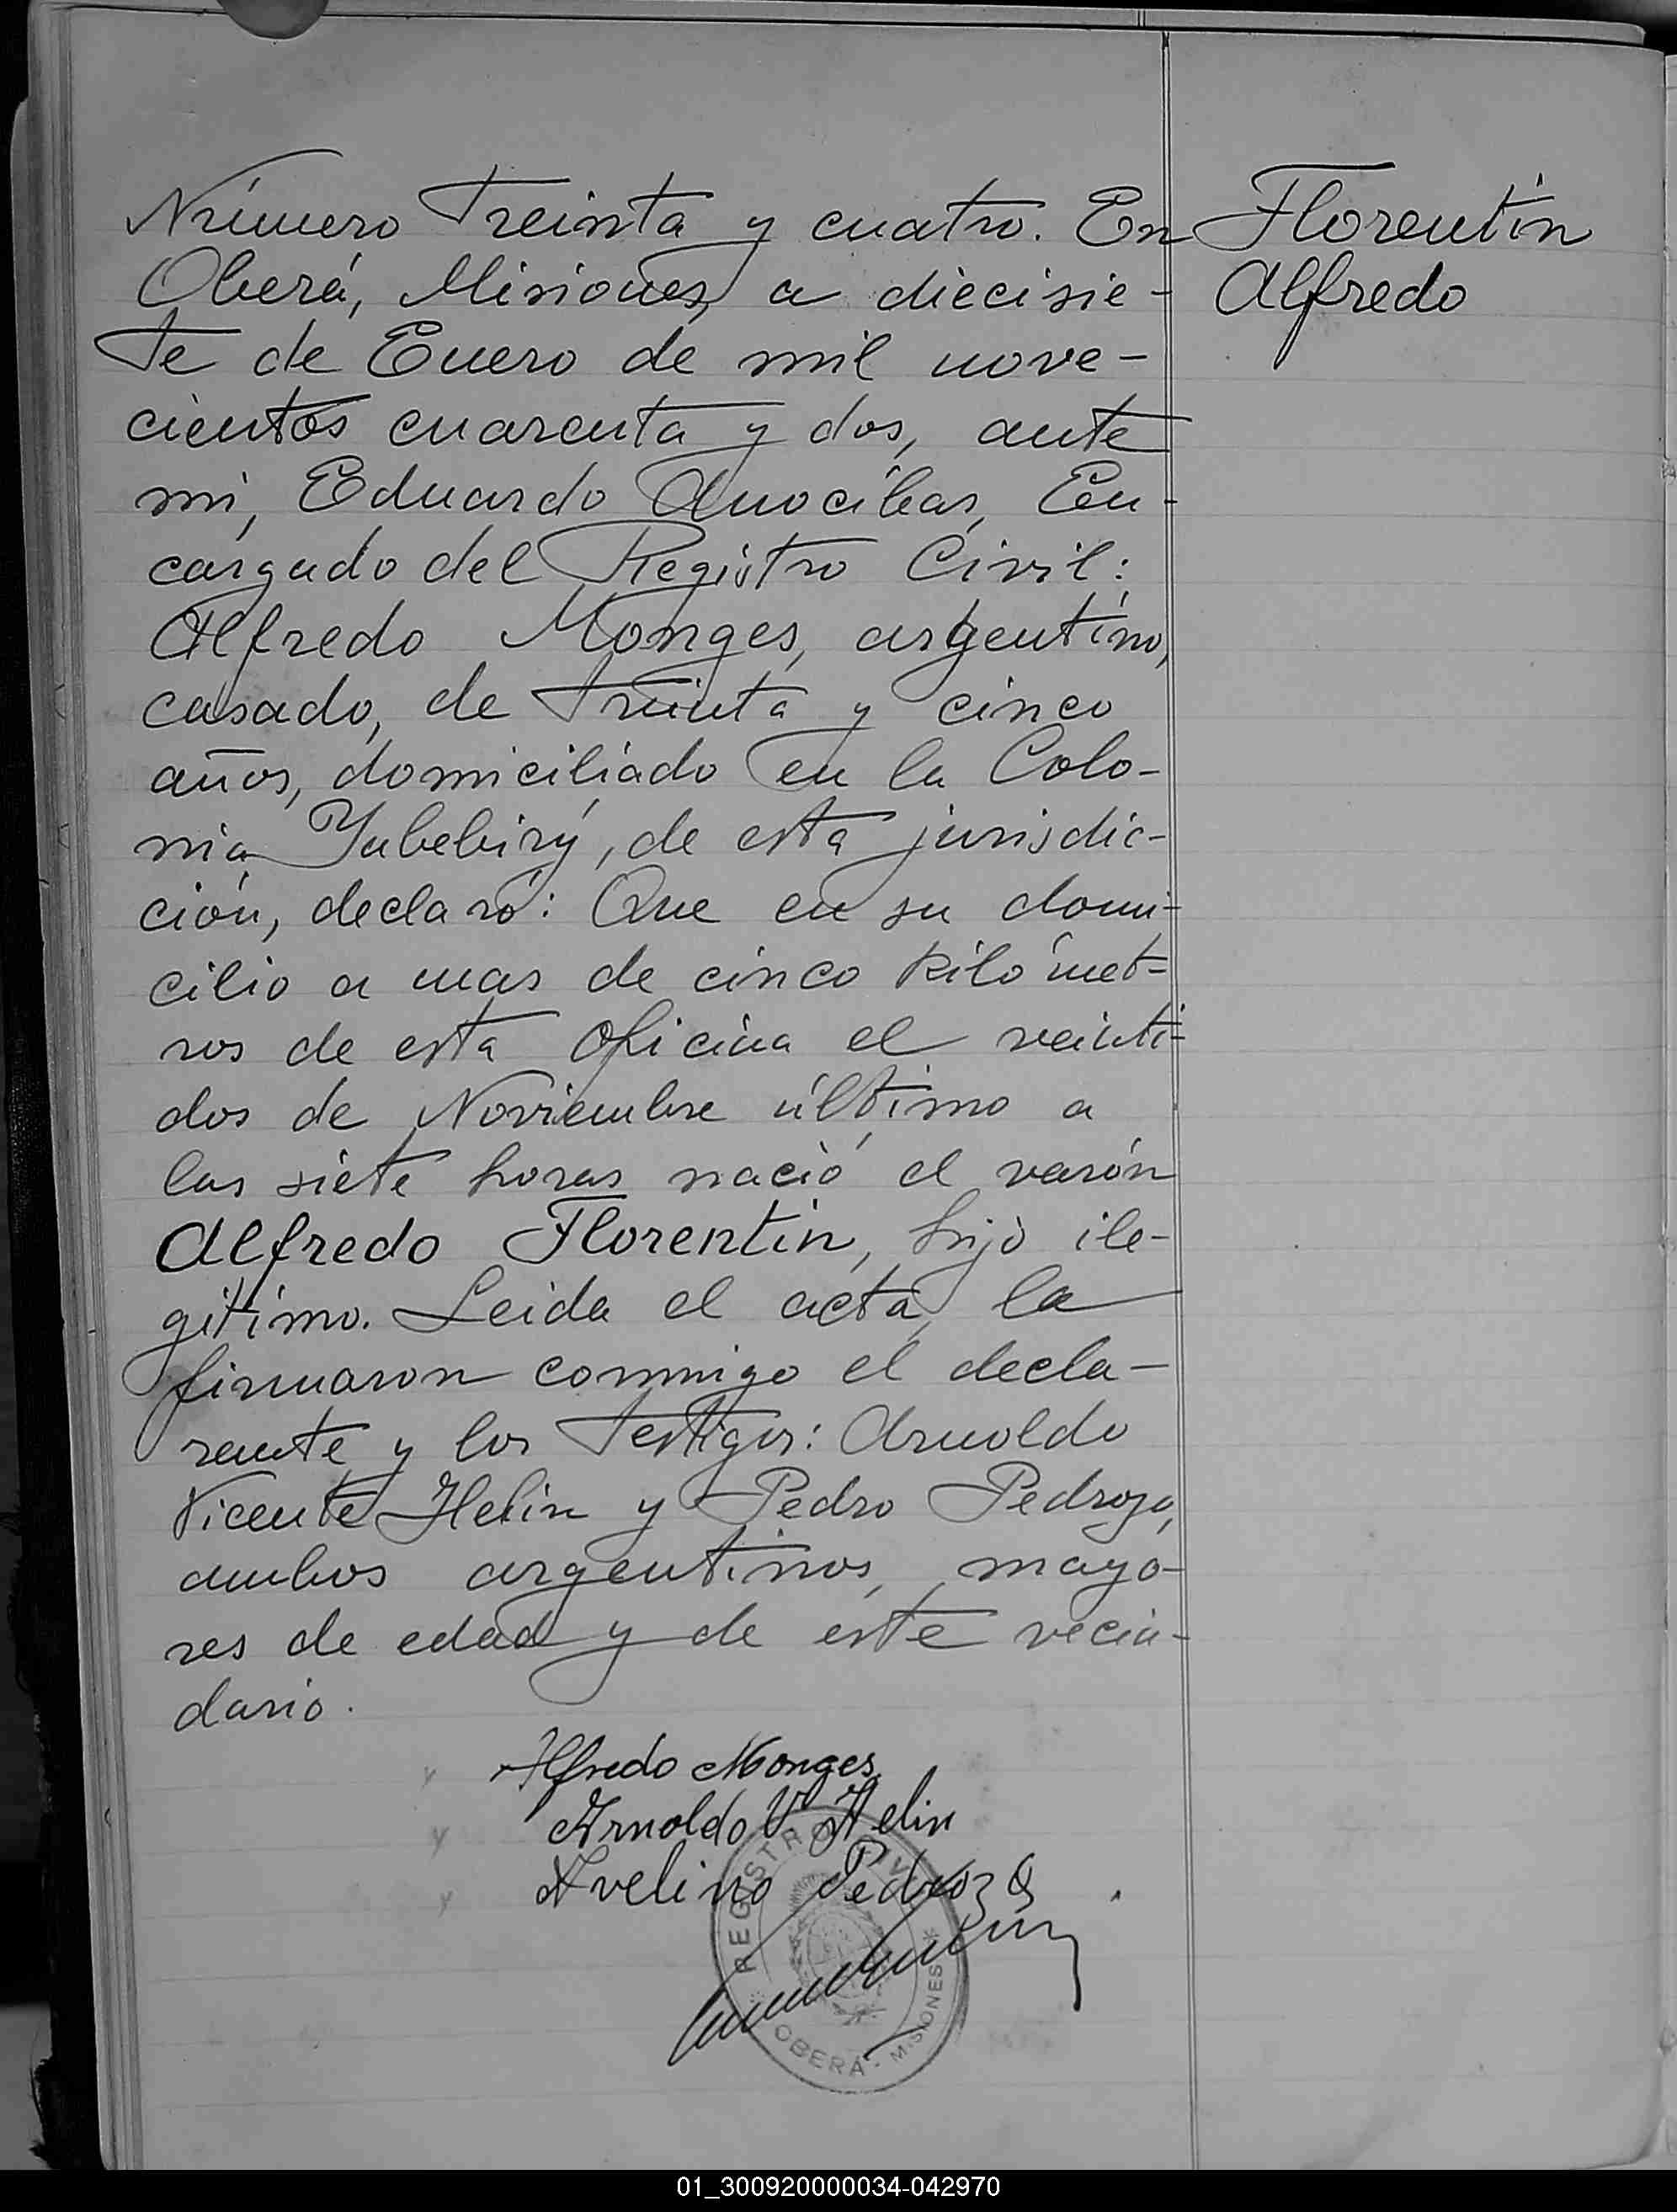 Número Treinta y cuatro. En
Florentin
Oberá, Misiones, a diecisie-
Alfredo
te de Enero de mil nove-
cientos cuarenta y dos, ante
mi, Eduardo Anocibar, En-
cargado del Registro Civil:
Alfredo Monges, argentino,
casado, de treinta y cinco
años, domiciliado en la Colo-
nia Yabebiry, de esta jurisdic-
ción, declaró: Que en su domi-
cilio a mas de cinco kilómet-
ros de esta Oficina el veinti-
dos de Noviembre último a
las siete horas nació el varón
Alfredo Florentin, hijo ile-
gitimo. Leida el acta, la
firmaron conmigo el decla-
rante y los testigos: Arnoldo
Vicente Helin y Pedro Pedrozo,
ambos argentinos, mayo-
res de edad y de este vecin-
dario.
Alfredo Monges
Arnoldo V. Helin
Avelino Pedrozo
REGISTRO CIVIL
OBERÁ - MISIONES
01_300920000034-042970